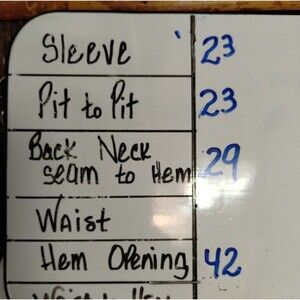 Sleeve 23
Pit to Pit 23
Back Neck
seam to Hem 29
Waist
Hem Opening 42